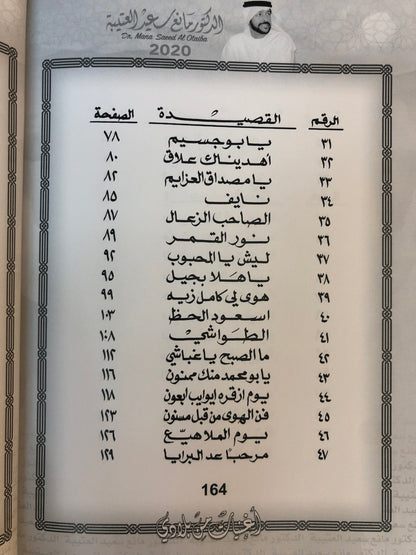 الدكتور مانع سعيد العتيبة
Dr. Mana Saeed Al Otaiba
2020
الرقم القصيدة الصفحة
٣١ يا بو جسيم ٧٨
٣٢ أهدينك علاق ٨٠
٣٣ يا مصداق العزايم ٨٢
٣٤ نايف ٨٥
٣٥ الصاحب الزعال ٨٧
٣٦ نور القمر ٨٩
٣٧ ليش يا المحبوب ٩٢
٣٨ يا هلا بجيل ٩٥
٣٩ هوى لي كامل زيه ٩٩
٤٠ اسعود الحظ ١٠٣
٤١ الطواشي ١٠٨
٤٢ ما الصبح يا غباشي ١١٢
٤٣ يا بو محمد منك ممنون ١١٦
٤٤ يوم ازقره ايوايب ابعون ١١٨
٤٥ فن الهوى من قبل مسنون ١٢٣
٤٦ يوم الملا هيع ١٢٦
٤٧ مرحبا عد البرايا ١٢٩
164
أغنيات من بلادي